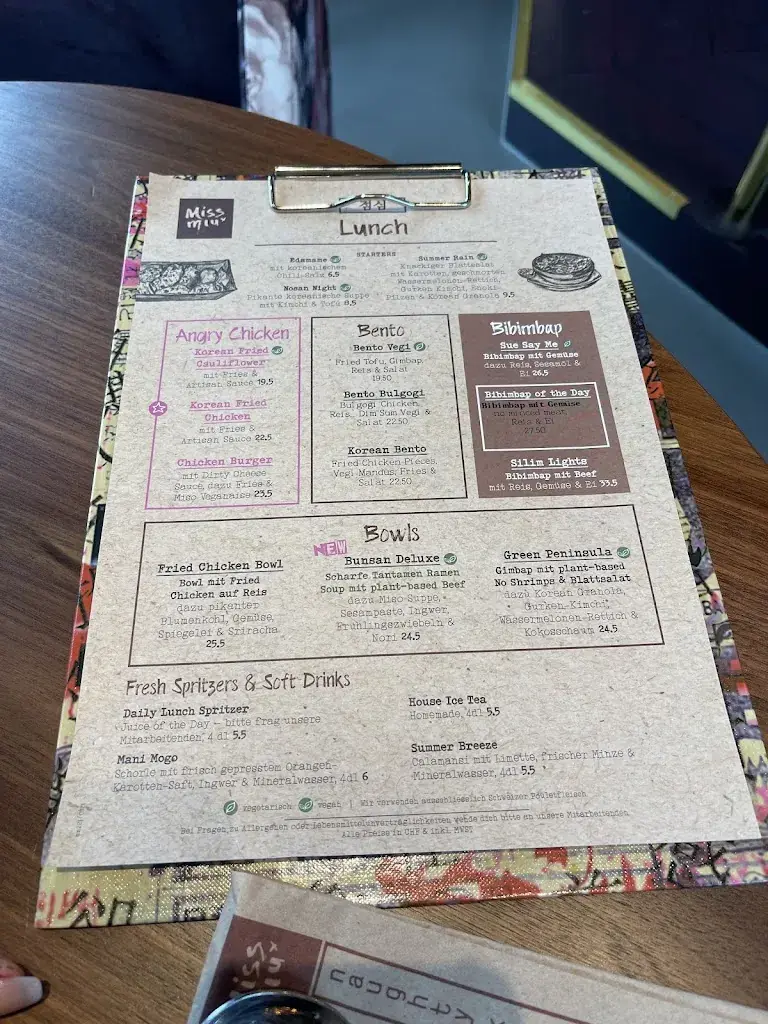 Miss
miu
점심
Lunch
STARTERS
Edamame
mit koreanischem
Chili-Salz 6.5
Nosan Night
Pikante koreanische Suppe
mit Kimchi & Tofu 8.5
Summer Rain
Knackiger Blattsalat
mit Karotten, geschmorten
Wassermelonen-Rettich,
Gurken Kimchi, Enoki-
Pilzen & Korean Granola 9.5
Angry Chicken
Korean Fried
Cauliflower
mit Fries &
Artisan Sauce 19.5
Korean Fried
Chicken
mit Fries &
Artisan Sauce 22.5
Chicken Burger
mit Dirty Cheese
Sauce, dazu Fries &
Miso Veganaise 23.5
Bento
Bento Vegi
Fried Tofu, Gimbap,
Reis & Salat
19.50
Bento Bulgogi
Bulgogi Chicken,
Reis, Dim Sum Vegi &
Salat 22.50
Korean Bento
Fried Chicken Pieces,
Vegi Mandus, Fries &
Salat 22.50
Bibimbap
Sue Say Me
Bibimbap mit Gemüse
dazu Reis, Sesamöl &
Ei 26.5
Bibimbap of the Day
Bibimbap mit Gemüse
no minced meat,
Reis & Ei
27.50
Silim Lights
Bibimbap mit Beef
mit Reis, Gemüse & Ei 33.5
Bowls
Fried Chicken Bowl
Bowl mit Fried
Chicken auf Reis
dazu pikanter
Blumenkohl, Gemüse,
Spiegelei & Sriracha
25.5
NEW
Bunsan Deluxe
Scharfe Tantamen Ramen
Soup mit plant-based Beef
dazu Miso-Suppe,
Sesampaste, Ingwer,
Frühlingszwiebeln &
Nori 24.5
Green Peninsula
Gimbap mit plant-based
No Shrimps & Blattsalat
dazu Korean Granola,
Gurken-Kimchi,
Wassermelonen-Rettich &
Kokosschaum 24.5
Fresh Spritzers & Soft Drinks
Daily Lunch Spritzer
Juice of the Day – bitte frag unsere
Mitarbeitenden, 4 dl 5.5
Mani Mogo
Schorle mit frisch gepresstem Orangen-
Karotten-Saft, Ingwer & Mineralwasser, 4dl 6
House Ice Tea
Homemade, 4dl 5.5
Summer Breeze
Calamansi mit Limette, frischer Minze &
Mineralwasser, 4dl 5.5
vegetarisch vegan | Wir verwenden ausschliesslich Schweizer Pouletfleisch
Bei Fragen zu Allergenen oder Lebensmittelunverträglichkeiten wende dich bitte an unsere Mitarbeitenden.
Alle Preise in CHF & inkl. MWST
iss
iu
naughty